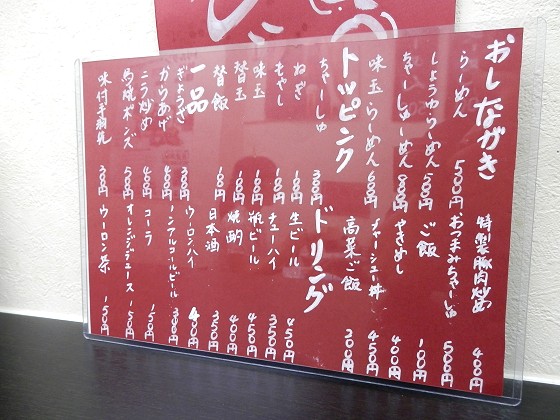 おしながき
らーめん 500円
しょうゆらーめん 550円
ちゃーしゅーめん 800円
味玉らーめん 600円
トッピング
ちゃーしゅ 300円
ねぎ 100円
もやし 100円
味玉 100円
替玉 100円
替飯 100円
一品
ぎょうざ 300円
からあげ 400円
ニラ炒め 400円
鳥焼ポンズ 500円
味付手羽先 300円
特製豚肉炒め 400円
おつまみちゃーしゅ 500円
ご飯 100円
やきめし 400円
チャーシュー丼 450円
高菜ご飯 200円
ドリング
生ビール 450円
チューハイ 350円
瓶ビール 450円
焼酎 400円
日本酒 350円
ウーロンハイ 400円
ノンアルコールビール 300円
コーラ 150円
オレンジジュース 150円
ウーロン茶 150円